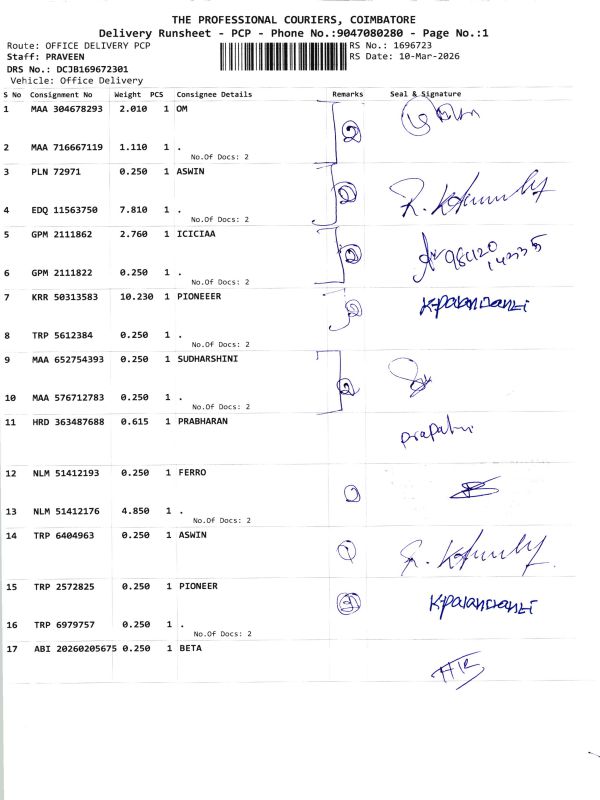 THE PROFESSIONAL COURIERS, COIMBATORE
Delivery Runsheet - PCP - Phone No.:9047080280 - Page No.:1
Route: OFFICE DELIVERY PCP RS No.: 1696723
Staff: PRAVEEN RS Date: 10-Mar-2026
DRS No.: DCJB169672301
Vehicle: Office Delivery
S No Consignment No Weight PCS Consignee Details Remarks Seal & Signature
1 MAA 304678293 2.010 1 OM
2
2 MAA 716667119 1.110 1 .
No.Of Docs: 2
3 PLN 72971 0.250 1 ASWIN
2
4 EDQ 11563750 7.810 1 .
No.Of Docs: 2
5 GPM 2111862 2.760 1 ICICIAA
2
6 GPM 2111822 0.250 1 .
No.Of Docs: 2
7 KRR 50313583 10.230 1 PIONEEER
2
8 TRP 5612384 0.250 1 .
No.Of Docs: 2
9 MAA 652754393 0.250 1 SUDHARSHINI
2
10 MAA 576712783 0.250 1 .
No.Of Docs: 2
11 HRD 363487688 0.615 1 PRABHARAN
12 NLM 51412193 0.250 1 FERRO
13 NLM 51412176 4.850 1 .
No.Of Docs: 2
14 TRP 6404963 0.250 1 ASWIN
15 TRP 2572825 0.250 1 PIONEER
16 TRP 6979757 0.250 1 .
No.Of Docs: 2
17 ABI 20260205675 0.250 1 BETA